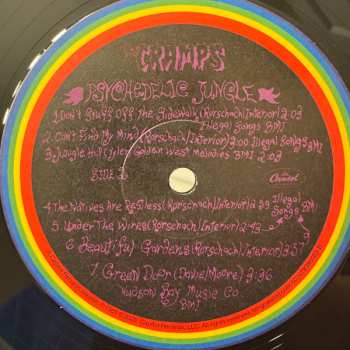 THE CRAMPS
PSYCHEDELIC JUNGLE
1. Don't Eat Stuff Off The Sidewalk (Rorschach/Interior) 2:03
Illegal Songs BMI
2. Can't Find My Mind (Rorschach/Interior) 3:00 Illegal Songs BMI
3. Jungle Hop (Tyler) Golden West Melodies BMI 2:03
SIDE
Capitol
4. The Natives Are Restless (Rorschach/Interior) 2:59 Illegal Songs BMI
5. Under The Wires (Rorschach/Interior) 2:43
6. Beautiful Gardens (Rorschach/Interior) 3:57
7. Green Door (Davie/Moore) 2:36
Hudson Bay Music Co.
BMI